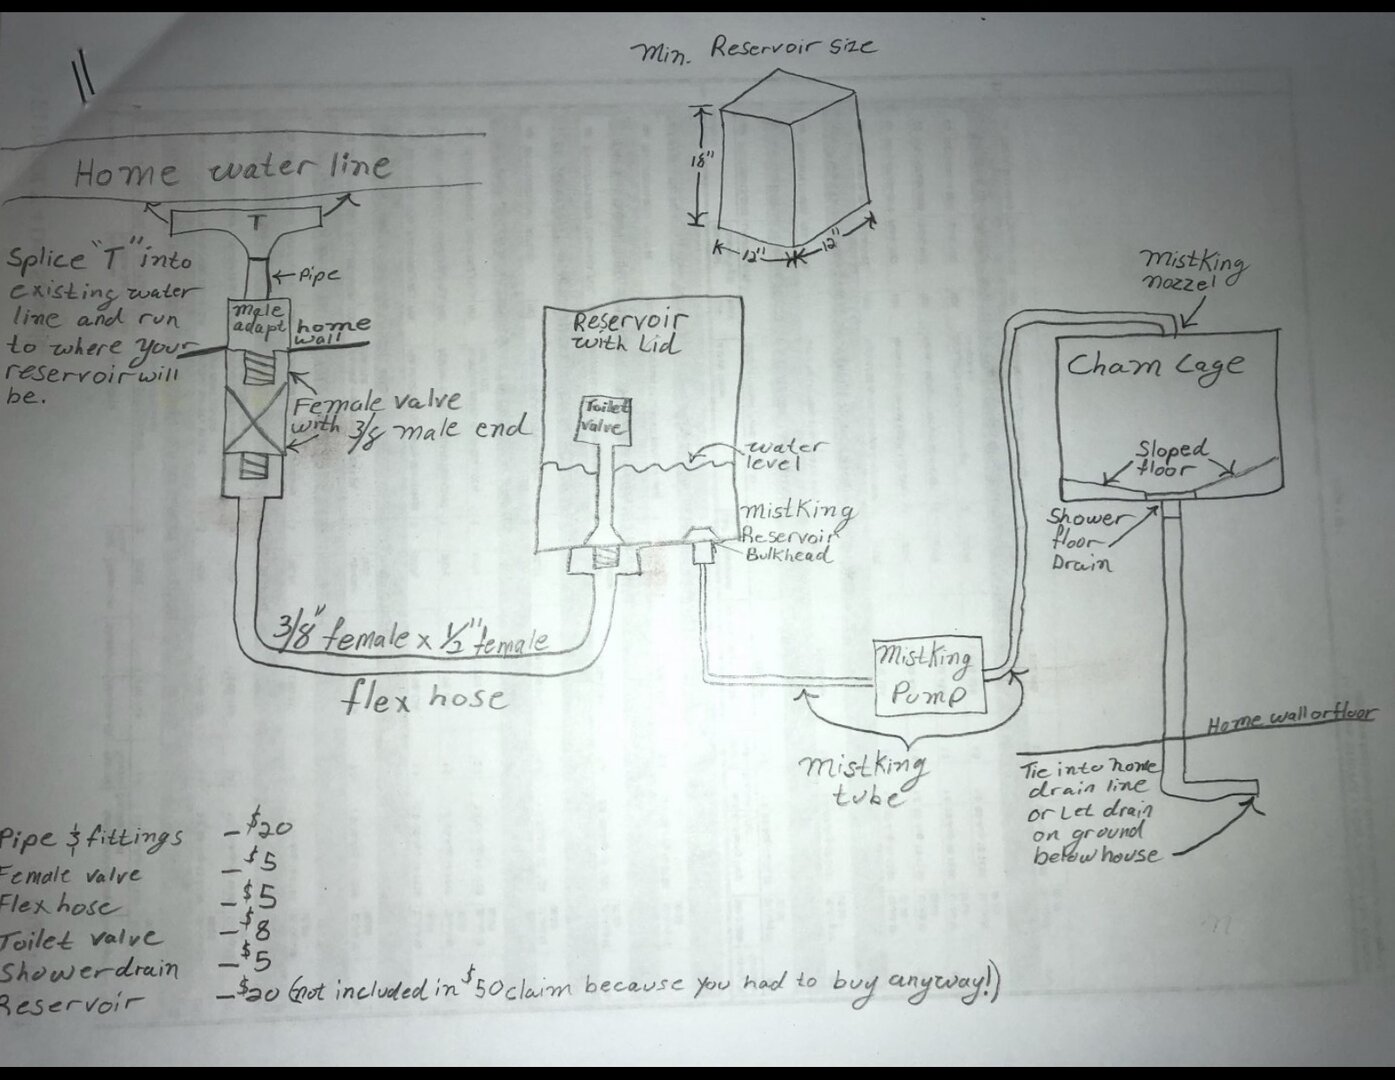 Min. Reservoir size
18"
12"
12"
Home water line
T
Splice "T" into
existing water
line and run
to where your
reservoir will
be.
Pipe
male
adapt
home
wall
Female valve
with 3/8 male end
Reservoir
with Lid
Toilet
valve
water
level
mistKing
Reservoir
Bulkhead
3/8" female x 1/2" female
flex hose
mistKing
Pump
mistKing
tube
mistKing
nozzel
Cham Cage
Sloped
floor
Shower
floor
Drain
Home wall or floor
Tie into home
drain line
or Let drain
on ground
below house
Pipe & fittings - $20
Female valve - $5
Flex hose - $5
Toilet valve - $8
Shower drain - $5
Reservoir - $20 (not included in $50 claim because you had to buy anyway!)